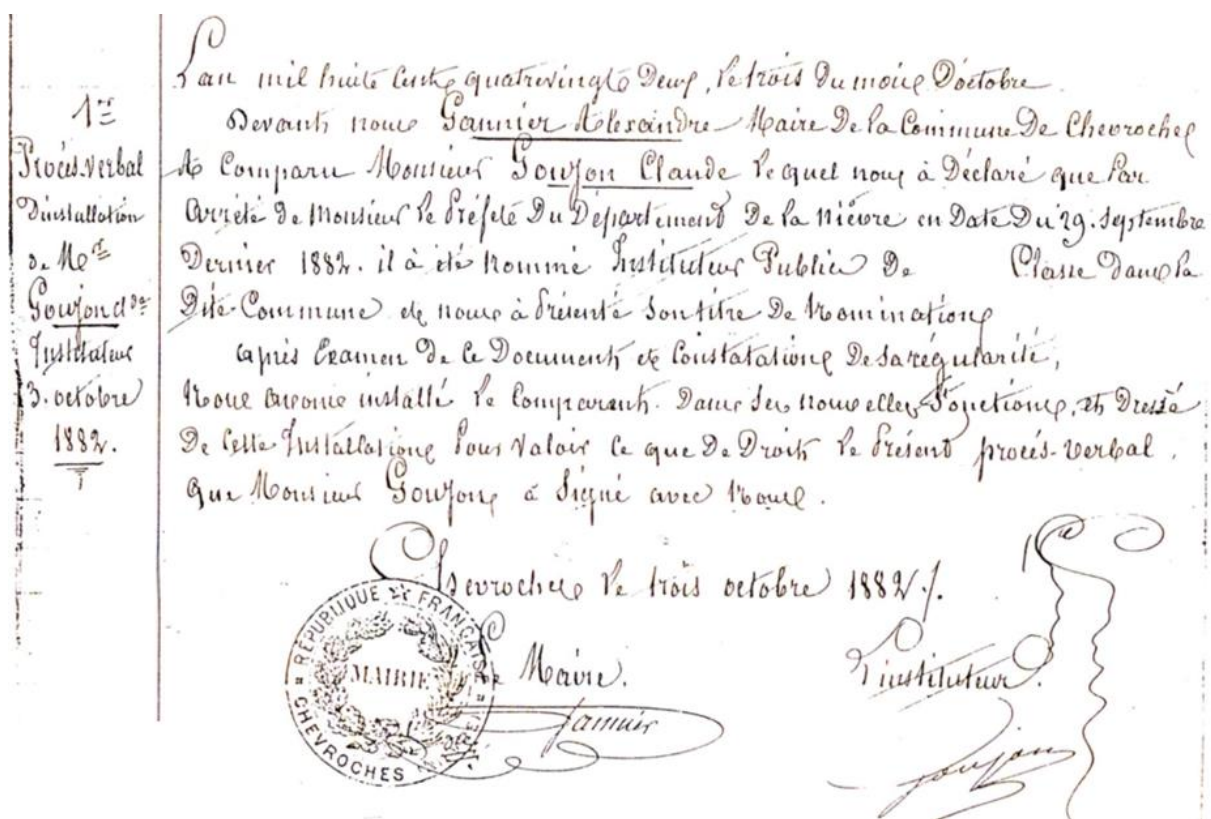 1er
Procès-verbal
D'installation
de Mr
Goujon Cde
Instituteur
3. octobre
1882.
L'an mil huits Cents quatrevingts Deux, le trois Du mois D'octobre.
Devants nous Gannier Alexandre Maire De la Commune De Chevroches
A Comparu Monsieur Goujon Claude lequel nous à Déclaré que Par
Arrêté de Monsieur le Préfets Du Département De la Nièvre en Date Du 29. Septembre
Dernier 1882. il à été Nommé Instituteur Public De Classe Dans la
Dite Commune et nous à Présenté son titre De Nomination
après Examen De Ce Document et Constatation De sa régularité,
Nous avons installé le Comparant. Dans ses nouvelles Fonctions, et Dressé
De Cette Installation Pour Valoir Ce que De Droit le Présent procès-verbal.
Que Monsieur Goujon à Signé avec Nous.
Chevroches le trois octobre 1882./.
Le Maire.
L'instituteur.
Gannier
Goujon
RÉPUBLIQUE FRANÇAISE
MAIRIE
CHEVROCHES